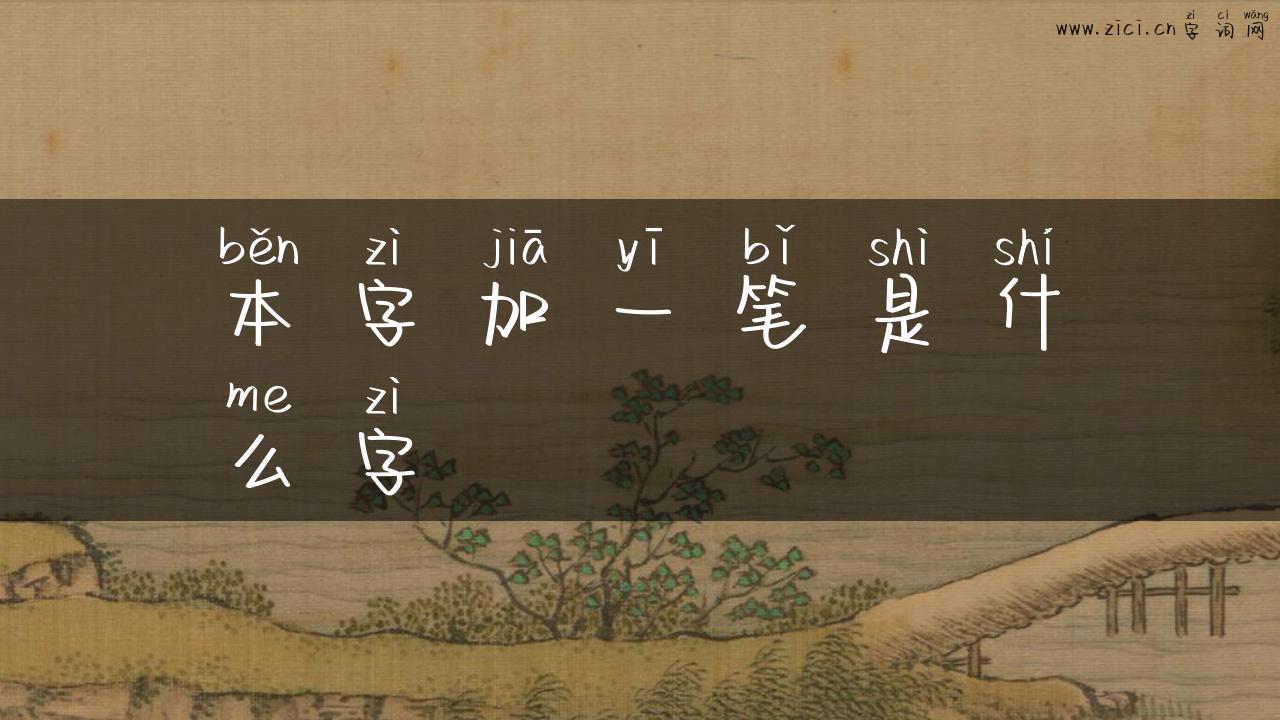 zì cí wǎng
www.zici.cn 字 词 网
běn zì jiā yī bǐ shì shí
本 字 加 一 笔 是 什
me zì
么 字